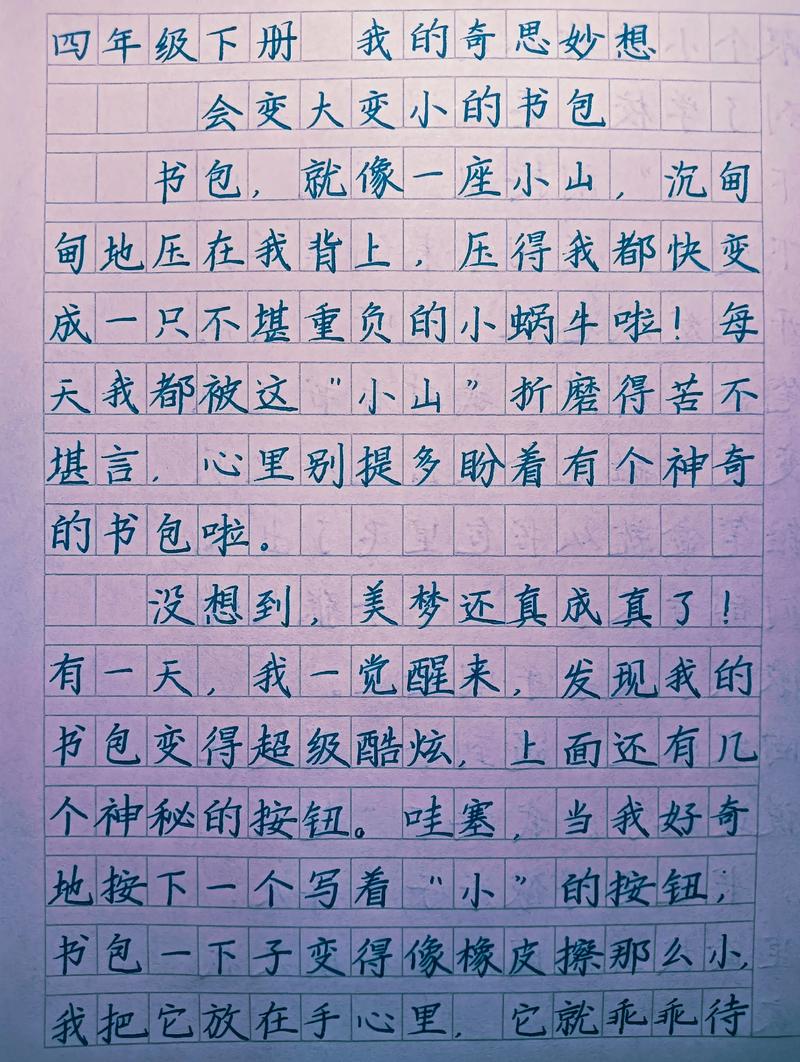 四年级下册 我的奇思妙想
会变大变小的书包
书包，就像一座小山，沉甸
甸地压在我背上，压得我都快变
成一只不堪重负的小蜗牛啦！每
天我都被这“小山”折磨得苦不
堪言，心里别提多盼着有个神奇
的书包啦。
没想到，美梦还真成真了！
有一天，我一觉醒来，发现我的
书包变得超级酷炫，上面还有几
个神秘的按钮。哇塞，当我好奇
地按下一个写着“小”的按钮，
书包一下子变得像橡皮擦那么小，
我把它放在手心里，它就乖乖待